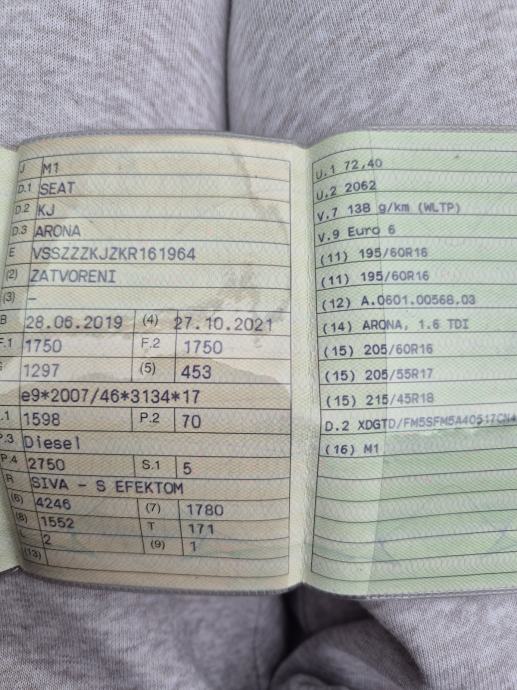 J M1
D.1 SEAT
D.2 KJ
D.3 ARONA
E VSSZZZKJZKR161964
(2) ZATVORENI
(3) –
B 28.06.2019 (4) 27.10.2021
F.1 1750 F.2 1750
G 1297 (5) 453
e9*2007/46*3134*17
P.1 1598 P.2 70
P.3 Diesel
P.4 2750 S.1 5
R SIVA - S EFEKTOM
(6) 4246 (7) 1780
(8) 1552 T 171
L 2 (9) 1
(13)
U.1 72,40
U.2 2062
V.7 138 g/km (WLTP)
V.9 Euro 6
(11) 195/60R16
(11) 195/60R16
(12) A.0601.00568.03
(14) ARONA, 1.6 TDI
(15) 205/60R16
(15) 205/55R17
(15) 215/45R18
D.2 XDGTD/FM5SFM5A40517CN4
(16) M1